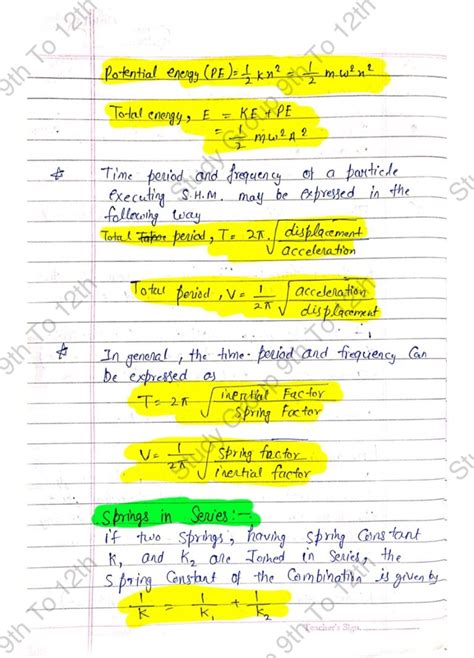 Potential energy (PE) = 1/2 kx² = 1/2 mω²x²
Total energy, E = KE + PE
= 1/2 mω²A²
Time period and frequency of a particle
executing S.H.M. may be expressed in the
following way
Total period, T = 2π √(displacement/acceleration)
Total period, V = 1/2π √(acceleration/displacement)
In general, the time-period and frequency Can
be expressed as
T = 2π √(inertial Factor/Spring Factor)
V = 1/2π √(Spring factor/inertial factor)
Springs in Series:-
if two Springs, having Spring Constant
K₁ and K₂ are Joined in Series, the
Spring Constant of the Combination is given by
1/K = 1/K₁ + 1/K₂
Teacher's Sign
Study Group 9th To 12th